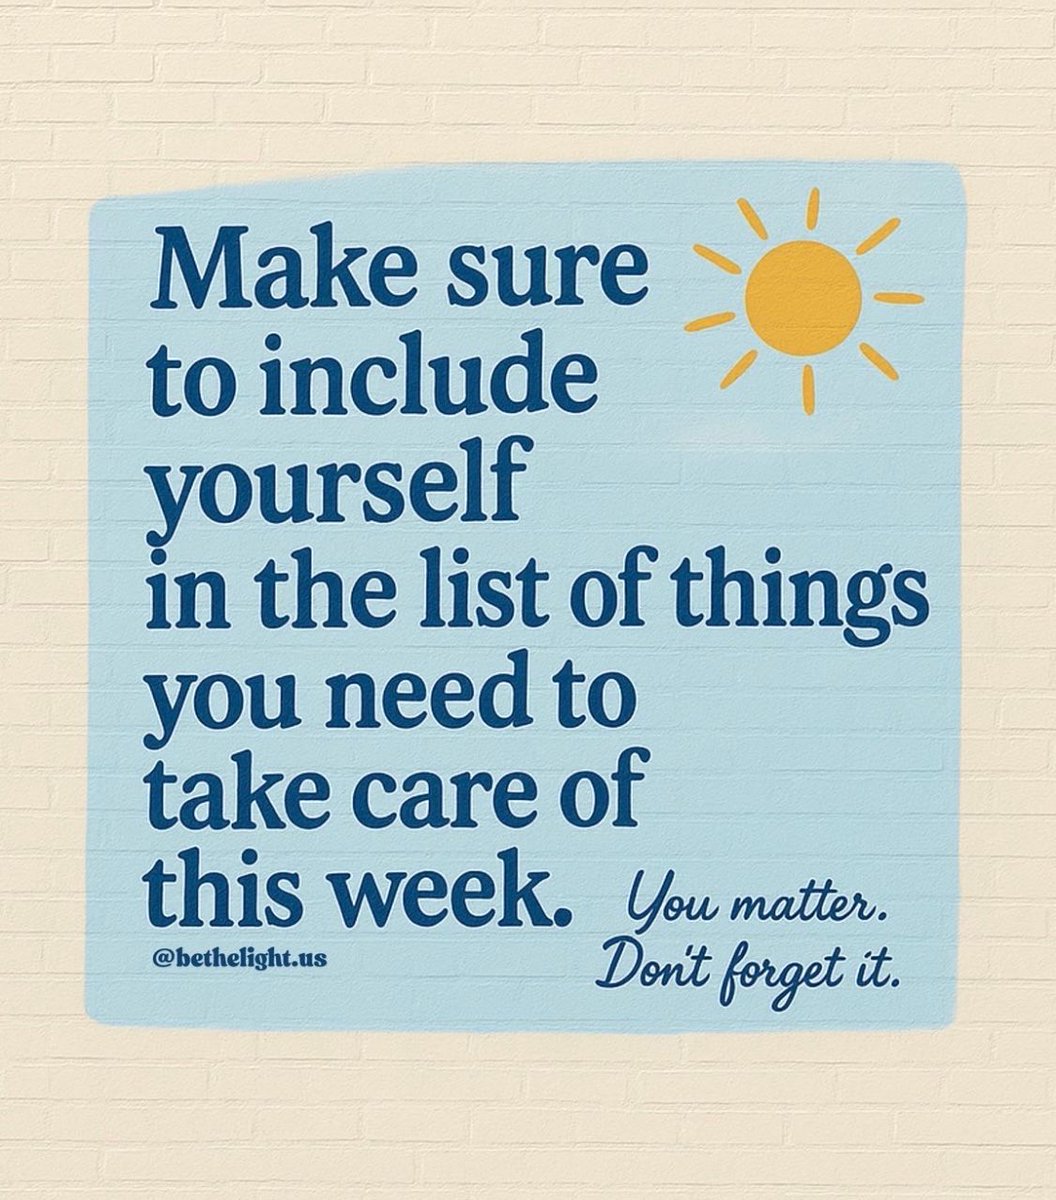 Make sure
to include
yourself
in the list of things
you need to
take care of
this week.
@bethelight.us
You matter.
Don't forget it.